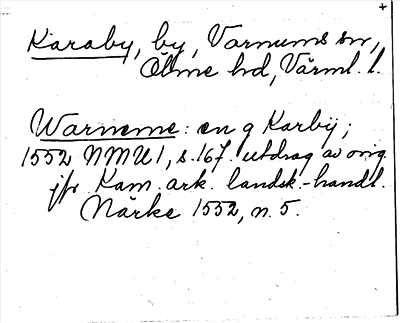 +
Karaby, by, Varnums sn,
Ölme hd, Värml. l.
Warneme: en g Karbÿ;
1552 NMU 1, s. 167. utdrag av orig.
jfr Kam. ark. landsk.-handl.
Närke 1552, n. 5.